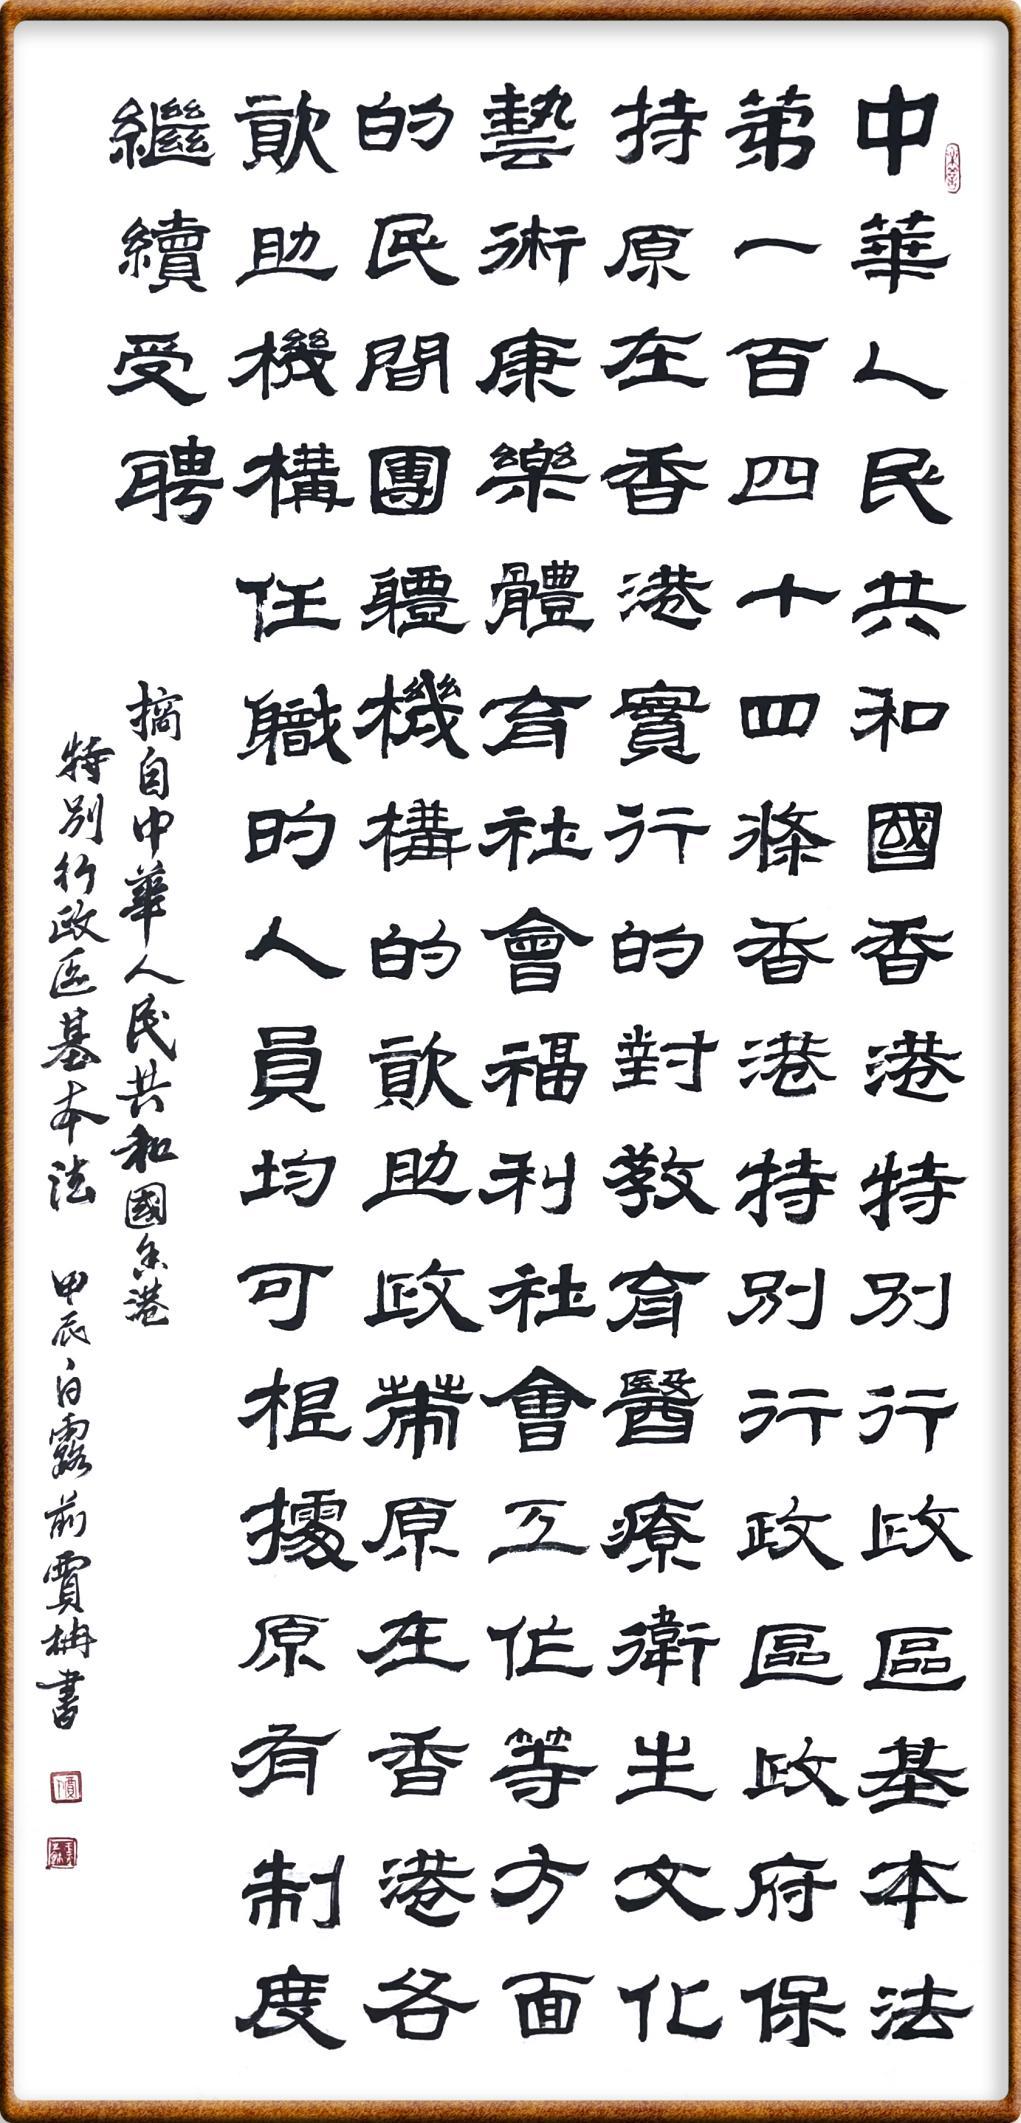 中華人民共和國香港特別行政區基本法
第一百四十四條香港特別行政區政府保
持原在香港實行的對教育醫療衛生文化
藝術康樂體育社會福利社會工作等方面
的民間團體機構的資助政策原在香港各
資助機構任職的人員均可根據原有制度
繼續受聘
摘自中華人民共和國香港
特別行政區基本法 甲辰白露前賈楠書